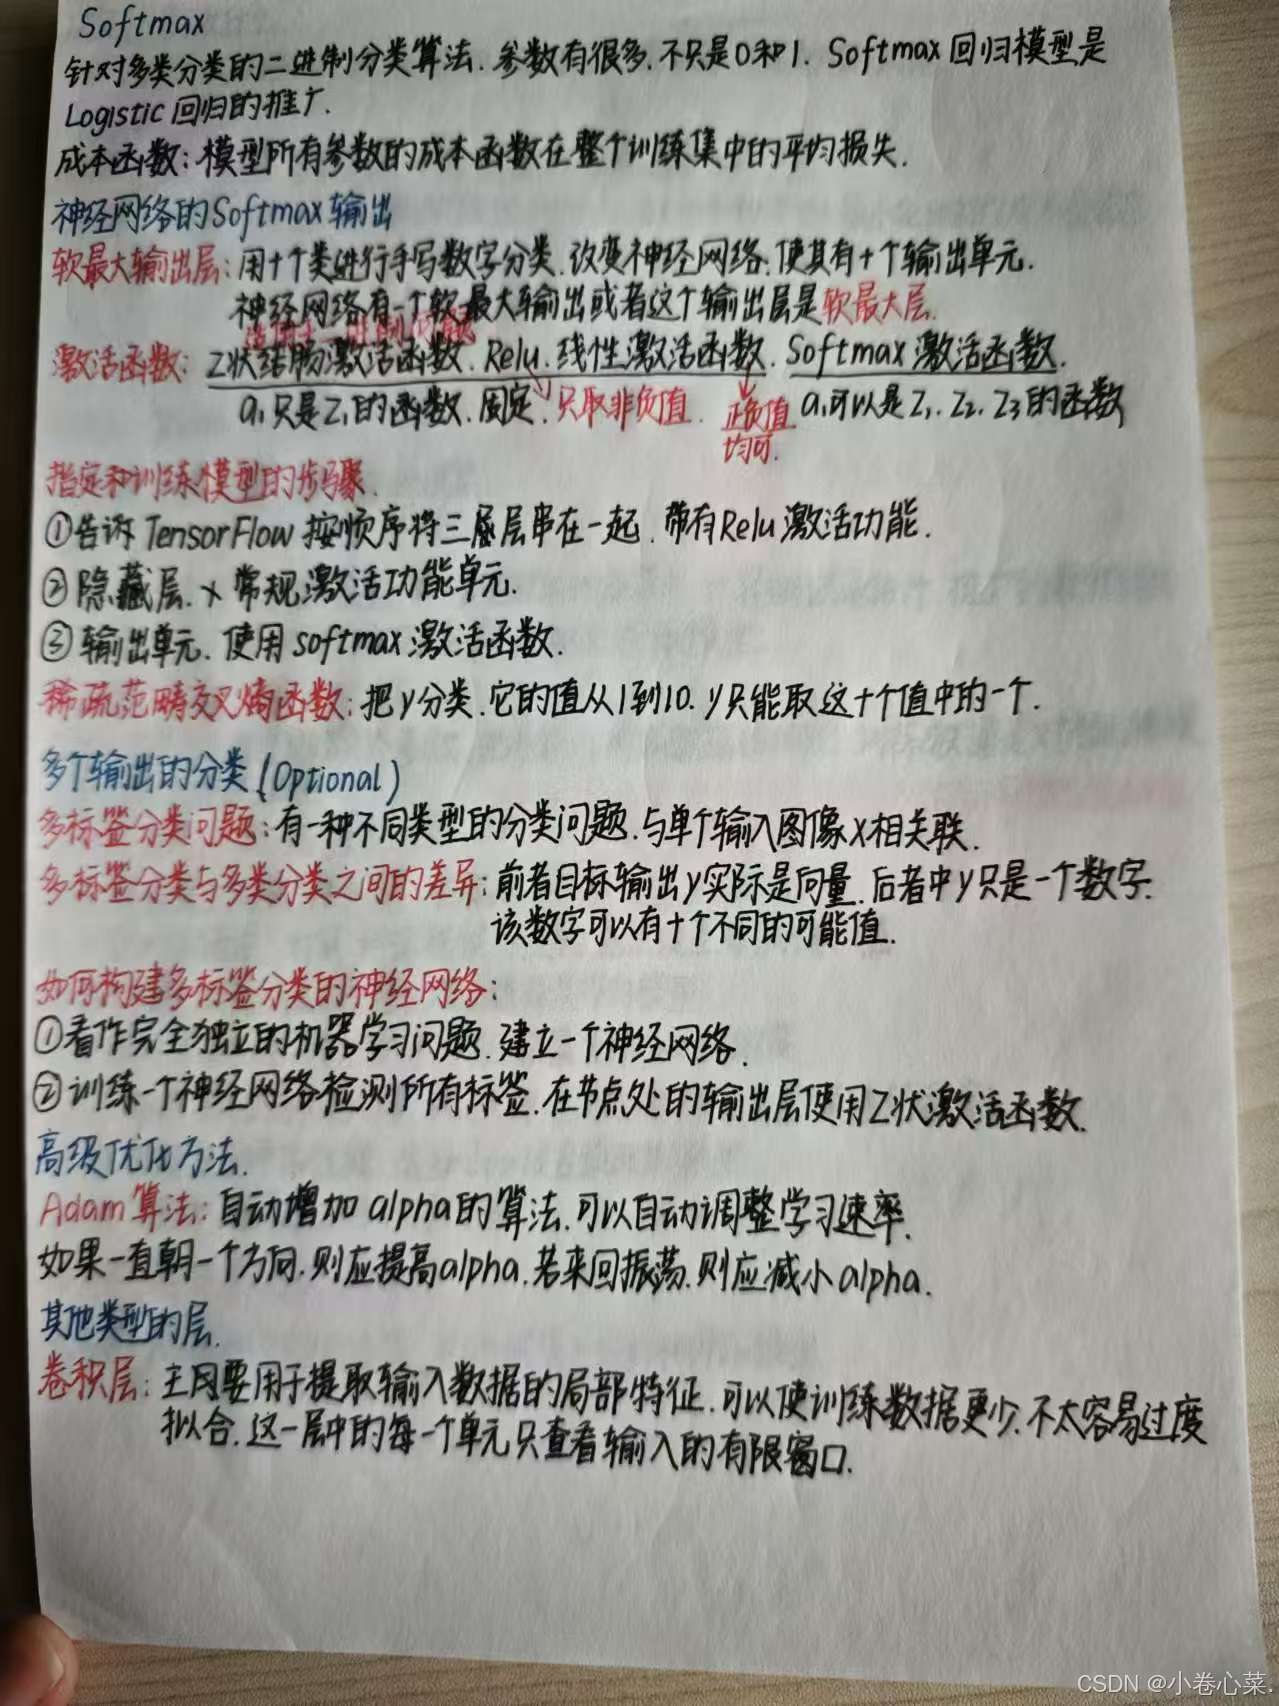 Softmax
针对多类分类的二进制分类算法.参数有很多.不只是0和1. Softmax回归模型是
Logistic回归的推广.
成本函数:模型所有参数的成本函数在整个训练集中的平均损失.
神经网络的Softmax输出
软最大输出层:用十个类进行手写数字分类.改变神经网络.使其有十个输出单元.
神经网络有一个软最大输出或者这个输出层是软最大层.
激活函数:Z状结肠激活函数.Relu.线性激活函数.Softmax激活函数.
a₁只是Z₁的函数.固定.只取非负值.正负值均可.a₁可以是Z₁.Z₂.Z₃的函数
指定和训练模型的步骤.
①告诉TensorFlow按顺序将三层层串在一起.带有Relu激活功能.
②隐藏层.x常规激活功能单元.
③输出单元.使用softmax激活函数.
稀疏范畴交叉熵函数:把y分类.它的值从1到10.y只能取这十个值中的一个.
多个输出的分类(Optional)
多标签分类问题:有一种不同类型的分类问题.与单个输入图像X相关联.
多标签分类与多类分类之间的差异:前者目标输出y实际是向量.后者中y只是一个数字.
该数字可以有十个不同的可能值.
如何构建多标签分类的神经网络:
①看作完全独立的机器学习问题.建立一个神经网络.
②训练一个神经网络检测所有标签.在节点处的输出层使用Z状激活函数.
高级优化方法.
Adam算法:自动增加alpha的算法.可以自动调整学习速率.
如果一直朝一个方向.则应提高alpha.若来回振荡.则应减小alpha.
其他类型的层.
卷积层:主要用于提取输入数据的局部特征.可以使训练数据更少.不太容易过度
拟合.这一层中的每一个单元只查看输入的有限窗口.
CSDN @小卷心菜.